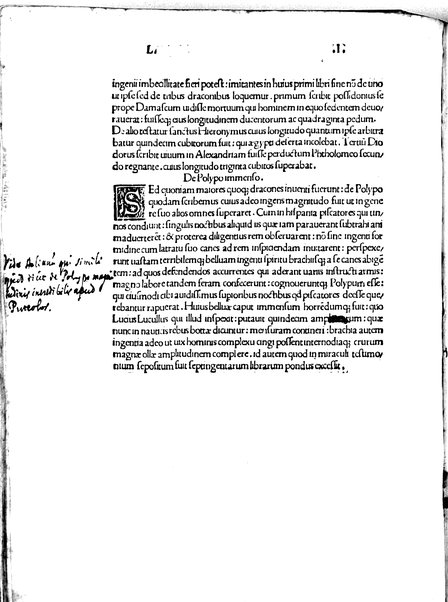 L III
ingenii imbecillitate fieri potest: imitantes in huius primi libri fine nō de uno
ut ipse sed de tribus draconibus loquemur. primum scribit possidonius se
prope Damascum uidisse mortuum qui hominem in equo sedentem deuo/
rauerat: fuisseq; eius longitudinem ducentorum ac quadraginta pedum.
De alio testatur sanctus Hieronymus cuius longitudo quantum ipse arbitra
batur quindecim cubitorum fuit: qui ægypto deserta incolebat. Tertiū Dio
dorus scribit uiuum in Alexandriam fuisse perductum Ptholomeo secun/
do regnante. cuius longitudo triginta cubitos superabat.
De Polypo immenso.
SEd quoniam maiores quoq; dracones inuenti fuerunt: de Polypo
quodam scribemus cuius adeo ingens magnitudo fuit ut in gene
re suo alios omnes superaret. Cum in hispania piscatores qui tin/
nos condiunt: singulis noctibus aliquid iis quæ iam parauerant subtrahi ani
maduerterēt: & proterea diligentius rem obseruarent: nō sine ingenti for
midine cum latratu suo canes ad rem inspiciendam inuitarent: perspexe/
runt uastam terribilemq; belluam ingenti spiritu brachiisq; a se canes abigē
tem: ad quos defendendos accurrentes qui aderant uariis instructi armis:
magno labore tandem feram confecerunt: cognoueruntq; Polypum esse:
qui eiusmodi cibi auidissimus superioribus noctibus qd piscatores deesse que/
rebantur rapuerat. Huius belluæ caput immensum horrēdumq; fuit: quo
Lucius Lucullus qui illud inspexit: putauit quindecim amphorarum: quæ
nunc in nauticis rebus bottæ dicuntur: mensuram contineri: brachia autem
ingentia adeo ut uix hominis complexu cingi possent internodiaq; crurum
magnæ ollæ amplitudinem complere. id autem quod in miraculi testimo/
nium sepositum fuit septingentarum librarum pondus excessit.
Vide Aelianū qui simile
quid dicit de Polypo magni
tudinis incredibilis apud
Puteolos.